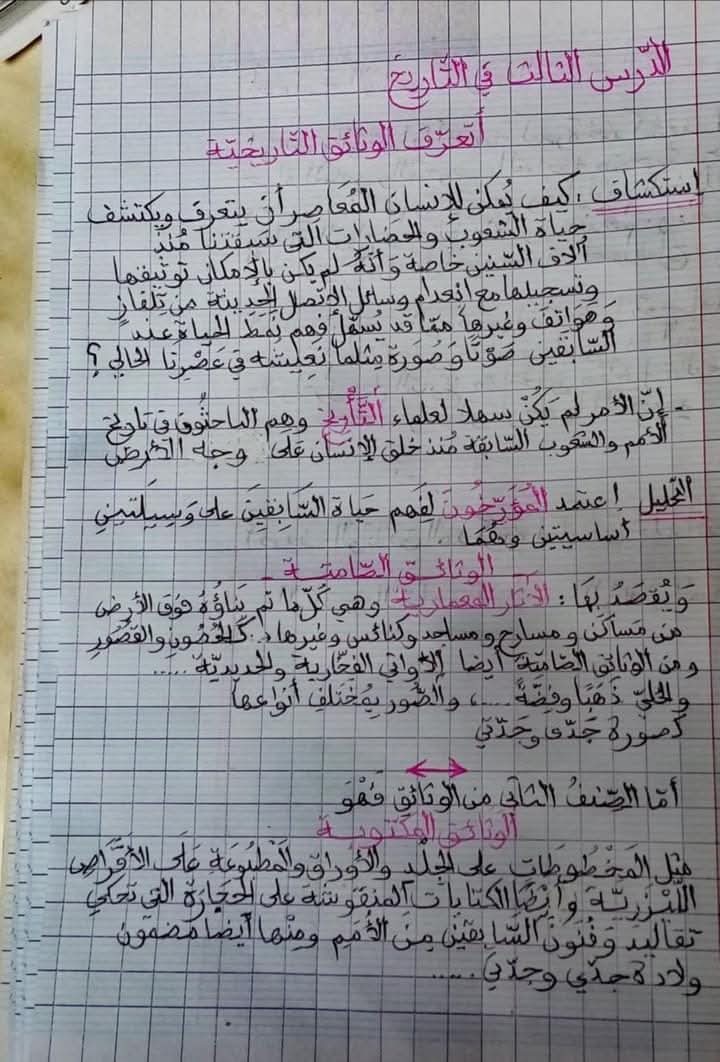 الدّرس الثالث في التّاريخ
أتعرّف الوثائق التّاريخيّة
إستكشاف : كيف يُمكن للإنسان المُعَاصِر أن يتعرف ويكتشف
حياة الشّعوب والحضارات التي سبقتنا مُنذ
آلاف السّنين خاصة وَأنّهُ لم يكن بالإمكان توثيقها
وتسجيلها مع انعدام وسائل الإتصل الحديثة من تِلفاز
وَهواتف وغيرها ممّا قد يُسهّل فهم نَمَط الحياة عند
السّابقين صَوْتًا وَصُورَة مِثلما نَعيشه في عَصْرنا الحالي ؟
- إنّ الأمر لم يَكُنْ سهلا لعلماء التّأريخ وهم الباحثُون في تاريخ
الأمم والشعوب السّابقة مُنذ خلق الإنسان عَلى وجه الأرض
التحليل إعتمد المُؤَرّخُونَ لِفَهم حَيَاة السّابِقِينَ على وَسِيلَتين
أساسيتين وهُمَا .
الوثائـق الصّامتـة -
وَيُقْصَدُ بِهَا : الآثار المعمارية وهي كُلّ ما تم بِنَاؤُهُ فوق الأرض
من مَساكن ومسارح ومساجد وكنائس وغيرها . كَالحُصُون والقصُور
ومن الوثائق الصّامتة أيضا الأواني الفخّارية والحديديّة .....
والحليّ ذَهَبًا وفِضّةً ..... ، والصّور بِمُختلف أنواعها
كصورة جَدّي وجَدّتي
أمّا الصّنفُ الثّاني من الوثائق فَهُوَ
الوثائق المكتوبـة
مثل المَخْطُوطَات على الجِلْد والأوراق والمَطبُوعَة عَلَى الأقْرَاص
اللّيزريّـة وأيْضًا الكتابات المنقوشة على الحِجَارَة التي تحكي
تقاليدَ وَفُنُونَ السّابقينَ مِنَ الأُمَم ومِنْها أيضا مضمون
ولادة جدّي وجدّتي ......